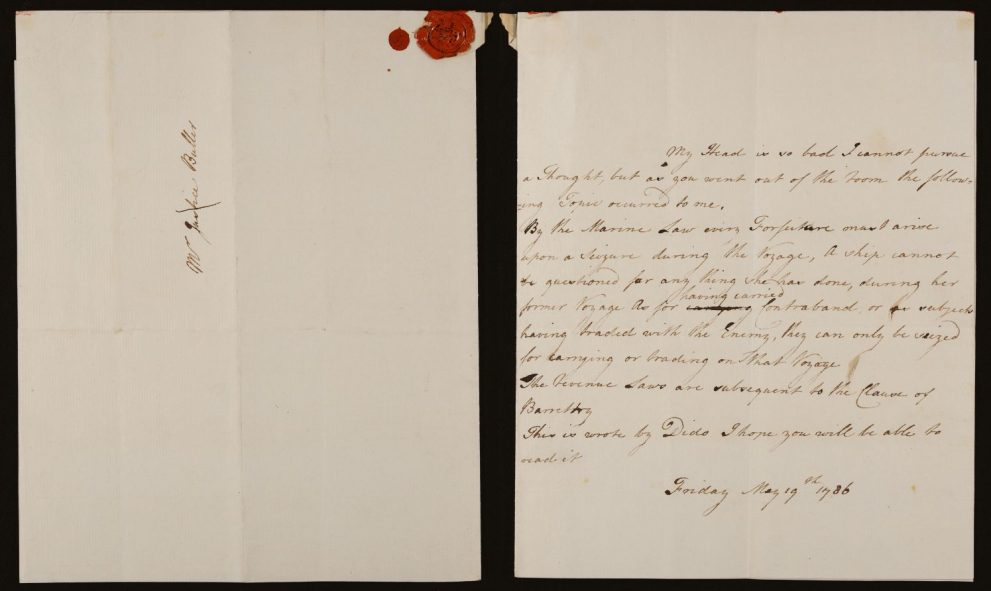 Mr Justice Buller
My Head is so bad I cannot pursue
a Thought, but as you went out of the room the follow=
=ing Topic occurred to me.
By the Marine Law every Forfeiture must arise
upon a Seizure during the Voyage, A ship cannot
be questioned for any thing she has done, during her
former Voyage As for having carried Contraband, or as subjects
having traded with the Enemy, they can only be seized
for carrying or trading on That Voyage
The Revenue Laws are subsequent to the Clause of
Barrettry
This is wrote by Dido I hope you will be able to
read it
Friday May 19th 1786